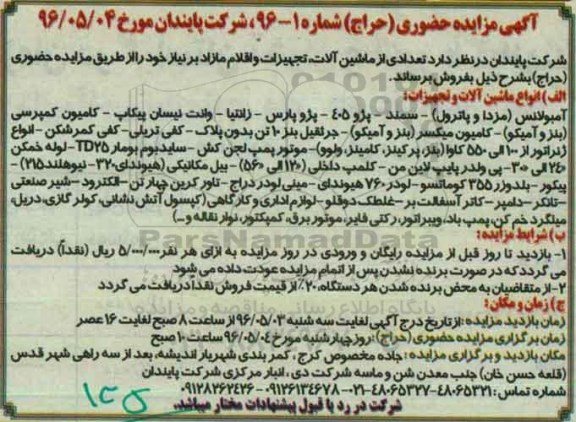 آگهی مزایده حضوری (حراج) شماره ۱-۹۶، شرکت پایندان مورخ ۹۶/۰۵/۰۴
شرکت پایندان در نظر دارد تعدادی از ماشین آلات، تجهیزات و اقلام مازاد بر نیاز خود را از طریق مزایده حضوری
(حراج) بشرح ذیل بفروش برساند.
الف) انواع ماشین آلات و تجهیزات:
آمبولانس (مزدا و پاترول) - سمند - پژو ۴۰۵ - پژو پارس - زانتیا - وانت نیسان پیکاپ - کامیون کمپرسی
(بنز و آمیکو) - کامیون میکسر (بنز و آمیکو) - جرثقیل بنز ۱۰ تن بدون پلاک - کفی تریلی - کفی کمرشکن - انواع
ژنراتور از ۱۰۰ الی ۵۵۰ کاوا (بنز، پرکینز، کامینز، ولوو) - موتور پمپ لجن کش - سایدبوم بومار TD25 - لوله خمکن
۲۴۰ الی ۳۰۰ - پی ولدر پایپ لاین من - کلمپ داخلی (۱۲۰ الی ۵۶۰) - بیل مکانیکی (هیوندای ۳۲۰ - نیوهلند ۲۱۵) -
پیکور - بلدوزر ۳۵۵ کوماتسو - لودر ۷۶۰ هیوندای - مینی لودر دراج - تاور کرین چهار تن - الکترود - شیر صنعتی
- تانکر - دامپر - کاتر آسفالت بر - غلطک دوقلو - لوازم اداری و کارگاهی (کپسول آتش نشانی، کولر گازی، دریل،
میلگرد خم کن، پمپ باد، ویبراتور، رکتی فایر، موتور برق، کمپکتور، نوار نقاله و ...)
ب) شرایط مزایده:
۱- بازدید تا روز قبل از مزایده رایگان و ورودی در روز مزایده به ازای هر نفر ۵/۰۰۰/۰۰۰ ریال (نقداً) دریافت
می گردد که در صورت برنده نشدن پس از اتمام مزایده عودت داده می شود
۲- از متقاضیان به محض برنده شدن هر دستگاه ۲۰٪ از قیمت فروش نقداً دریافت می گردد
ج) زمان و مکان:
زمان بازدید مزایده: از تاریخ درج آگهی لغایت سه شنبه ۹۶/۰۵/۰۳ از ساعت ۸ صبح لغایت ۱۶ عصر
زمان برگزاری مزایده حضوری (حراج): روز چهارشنبه مورخ ۹۶/۰۵/۰۴ ساعت ۱۰ صبح
مکان بازدید و برگزاری مزایده: جاده مخصوص کرج، کمربندی شهریار اندیشه، بعد از سه راهی شهر قدس
(قلعه حسن خان) جنب معدن شن و ماسه شرکت دی، انبار مرکزی شرکت پایندان
شماره تماس: ۴۸۰۶۵۳۲۱-۴۸۰۶۵۳۲۷-۰۲۱ ۰۹۱۲۶۱۳۴۶۷۸-۰۹۱۲۸۲۶۲۴۳۶
شرکت در رد یا قبول پیشنهادات مختار میباشد.
ParsNamadData
پایگاه اطلاع رسانی مناقصه و مزایده